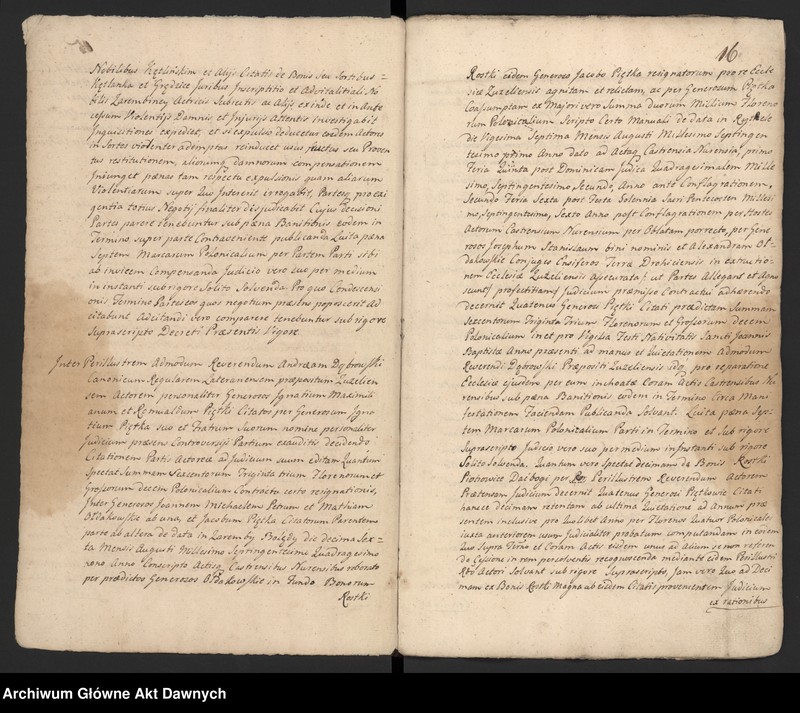 Nobilibus Kętlińskim et Alijs Citatis de Bonis seu Sortibus =
Kętlanka et Grędzice Juribus Inscriptitio et Advitalitiali No
bilis Zarembiney Actricis Subiectis ac Alijs exinde et in Ante
cessum Violentijs Damnis et Injurijs Attentis investigabit
Inquisitiones expediet, et si expulsio deducetur eodem Actores
in Sortes violenter ademptas reinducet usus fructus seu Proven
tus restitutionem, aliorumq damnorum compensationem
Injunget pænas tam respectu expulsionis quam aliarum
Violentiarum super Quo Intererit irrogabit, Partesq pro exi
gentia totius Negotij finaliter disjudicabit Cujus decisioni
Partes parere tenebuntur sub pæna Banitionis eodem in
Termino super parte Contraveniente publicanda Luita pæna
Septem Marcarum Polonicalium per Partem Parti sibi
ab invicem Compensanda Judicio vero suo per medium
in instanti sub rigore Solito Solvenda. Pro quo Condescensi
onis Termino Palæseos quos negotium præsens poposcerit Ad
citabunt Adcitandi vero comparere tenebuntur sub rigore
Suprascripto Decreti Præsentis Vigore.
Inter Perillustrem Admodum Reverendum Andream Dąbrowski
Canonicum Regularem Lateranensem præpositum Zuzelien
sem Actorem personaliter Generosos Ignatium Maximili
anum et Romualdum Piętki Citatos per Generosum Igna
tium Piętka suo et Fratrum Suorum nomine personaliter
Judicium præsens Controversijs Partium exauditis decidendo
Citationem Partis Actoreæ ad Judicium suum editam Quantum
Spectat Summam Sexcentorum Triginta trium Florenorum et
Grossorum decem Polonicalium Contractu certo resignationis,
Inter Generosos Joannem Michaelem Petrum et Mathiam
Ołdakowskie ab una, et Jacobum Piętka Citatorum Parentem
parte ab altera de data in Zaremby Bolędy die decima Sex =
ta Mensis Augusti Millesimo Septingentesimo Quadragesimo
nono Anno Conscripto Actisq Castrensibus Nurensibus roborato
per prædictos Generosos Ołdakowskie in Fundo Bonorum
Rostki
16
Rostki eidem Generoso Jacobo Piętka resignatorum pro re Eccle
siæ Zuzeliensis agnitam et relictam, ac per Generosum Piętka
Coassumptam ex Majori vero Summa duorum Millium Floreno
rum Polonicalium Scripto Certo Manuali de data in
die Vigesima Septima Mensis Augusti Millesimo Septingen
tesimo primo Anno dato ad Actaq Castrensia Nurensia, primo
Feria Quinta post Dominicam Judica Quadragesimalem Mille
simo, Septingentesimo Secundo, Anno ante Conflagrationem,
Secundo Feria Sexta post Festa Solennia Sacri Pentecosten Millesi
mo, Septingentesimo, Sexto Anno post Conflagrationem per Hostes
Actorum Castrensium Nurensium per Oblatam porrecto, per Gene
rosos Josephum Stanislaum bini nominis et Alexandram Oł=
dakowskie Conjuges Ensiferos Terræ Drohiciensis in extructio=
nem Ecclesiæ Zuzeliensis Assecurata, ut Partes Allegant et Agno
scunt, profectitiam, Judicium præmisso Contractui adhærendo
decernit Quatenus Generosi Piętki Citati prædictam Summam
Sexcentorum Triginta Trium Florenorum et Grossorum decem
Polonicalium in et pro Vigilia Festi Nativitatis Sancti Joannis
Baptistæ Anno præsenti ad manus et Quietationem Admodum
Reverendi Dąbrowski Præpositi Zuzeliensis pro reparatione
Ecclesiæ ejusdem per eum inchoatæ Coram Actis Castrensibus Nu
rensibus sub pæna Banitionis eodem in Termino Circa Mani
festationem Faciendam Publicanda Solvant. Luita pæna Sep
tem Marcarum Polonicalium Parti in Termino et Sub rigore
Suprascripto Judicio vero suo per medium in instanti sub rigore
Solito Solvenda. Quantum vero Spectat decimam de Bonis Rostki
Piotrowice Daćbogi per Perillustrem Reverendum Actorem
Prætensam Judicium decernit Quatenus Generosi Piętkowie Citati
hancce decimam retentam ab ultima Quietatione ad Annum præ
sentem inclusive pro Quolibet Anno per Florenos Quatuor Polonicales
iuxta anteriorem usum Judicialiter probatum computandam in eodem
Quo Supra Termo et Coram Actis eisdem unus ad alium se non referen
do Cessione in rem percetventis recognoscenda mediante eidem Perillustri
Rdo Actori Solvant sub rigore Suprascripto, Jam vero Quo ad Deci
mam ex Bonis Rostki Magna ab eisdem Citatis provenientem Judicium
ex rationibus
Archiwum Główne Akt Dawnych